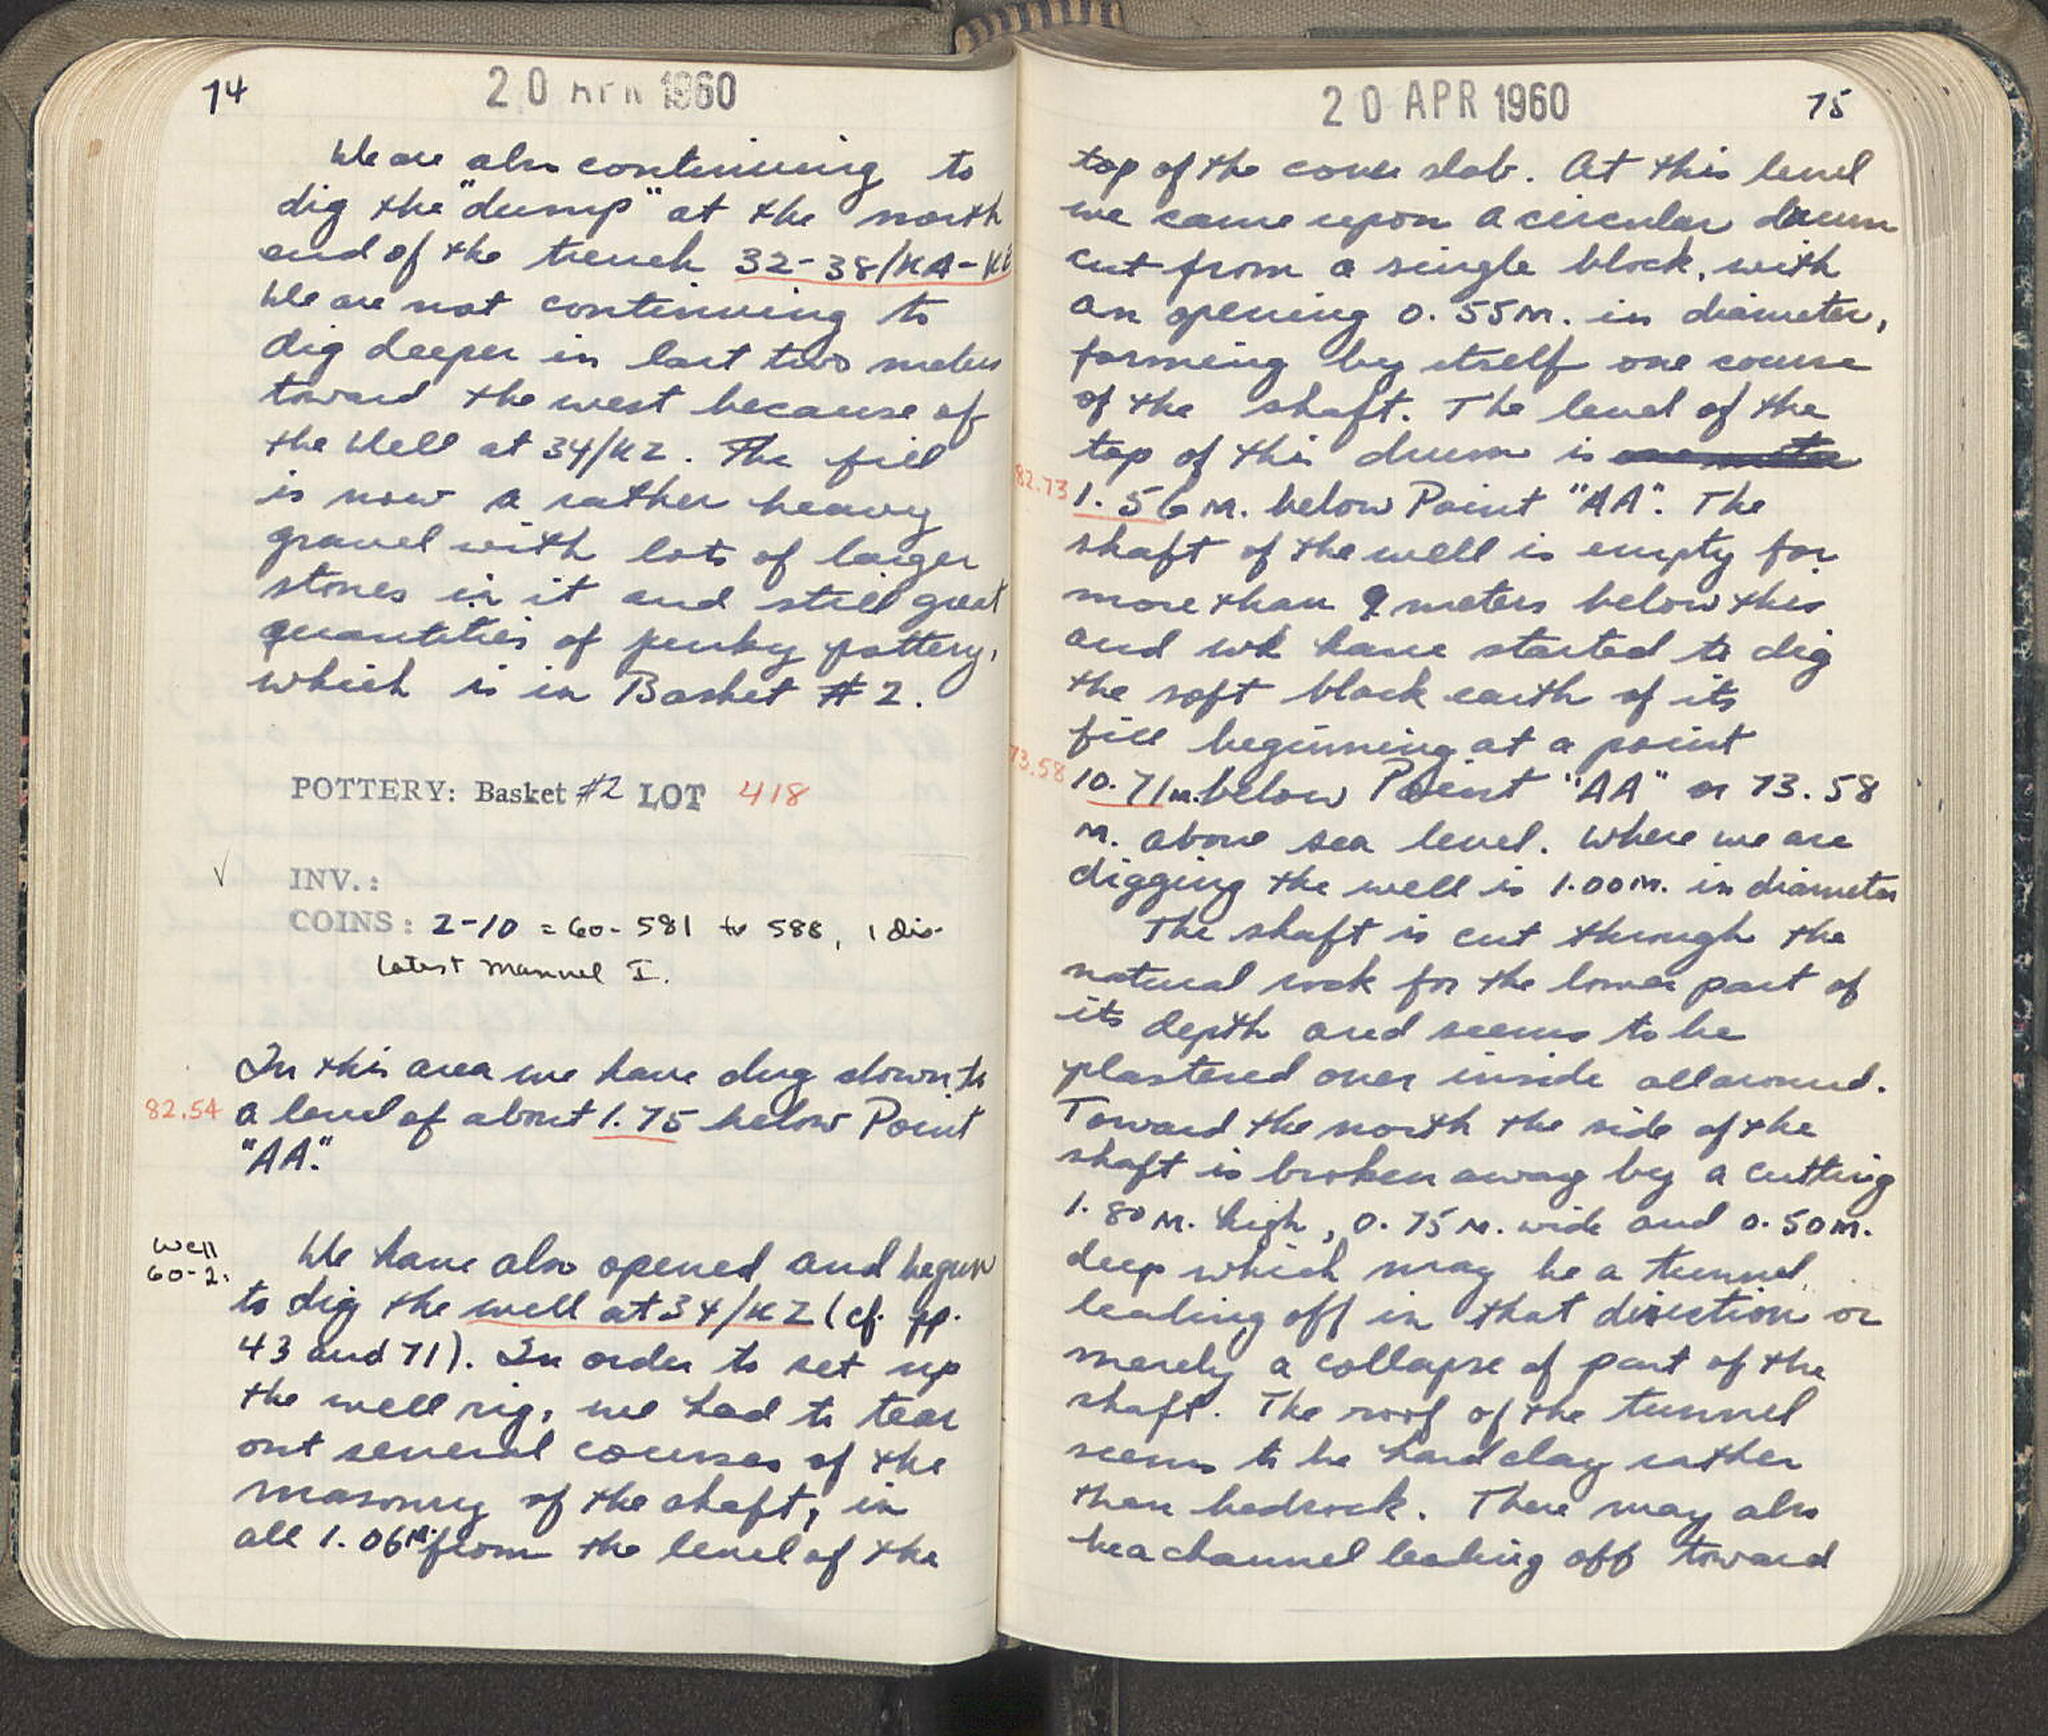 74
20 APR 1960
We are also continuing to
dig the "dump" at the north
end of the trench 32-38/KA-
We are not continuing to
dig deeper in last two meters
toward the west because of
the Well at 34/KZ. The fill
is now a rather heavy
gravel with lots of larger
stones in it and still great
quantities of punky pottery,
which is in Basket #2.
POTTERY: Basket #2 LOT 418
√ INV.:
COINS: 2-10 = 60-581 to 588, 1 dis-
latest Manuel I.
In this area we have dug down to
82.54 a level of about 1.75 below Point
"AA".
Well
60-2.
We have also opened and begun
to dig the well at 34/KZ (cf. pp.
43 and 71). In order to set up
the well rig, we had to tear
out several courses of the
masonry of the shaft, in
all 1.06 M. from the level of the
20 APR 1960
75
top of the cover slab. At this level
we came upon a circular drum
cut from a single block, with
an opening 0.55 M. in diameter,
forming by itself one course
of the shaft. The level of the
top of this drum is one meter
82.73 1.56 M. below Point "AA". The
shaft of the well is empty for
more than 9 meters below this
and we have started to dig
the soft black earth of its
fill beginning at a point
73.58 10.71 M. below Point "AA" or 73.58
M. above sea level. Where we are
digging the well is 1.00 M. in diameter
The shaft is cut through the
natural rock for the lower part of
its depth and seems to be
plastered over inside all around.
Toward the north the side of the
shaft is broken away by a cutting
1.80 M. high, 0.75 M. wide and 0.50 M.
deep which may be a tunnel
leading off in that direction or
merely a collapse of part of the
shaft. The roof of the tunnel
seems to be hard clay rather
than bedrock. There may also
be a channel leading off toward